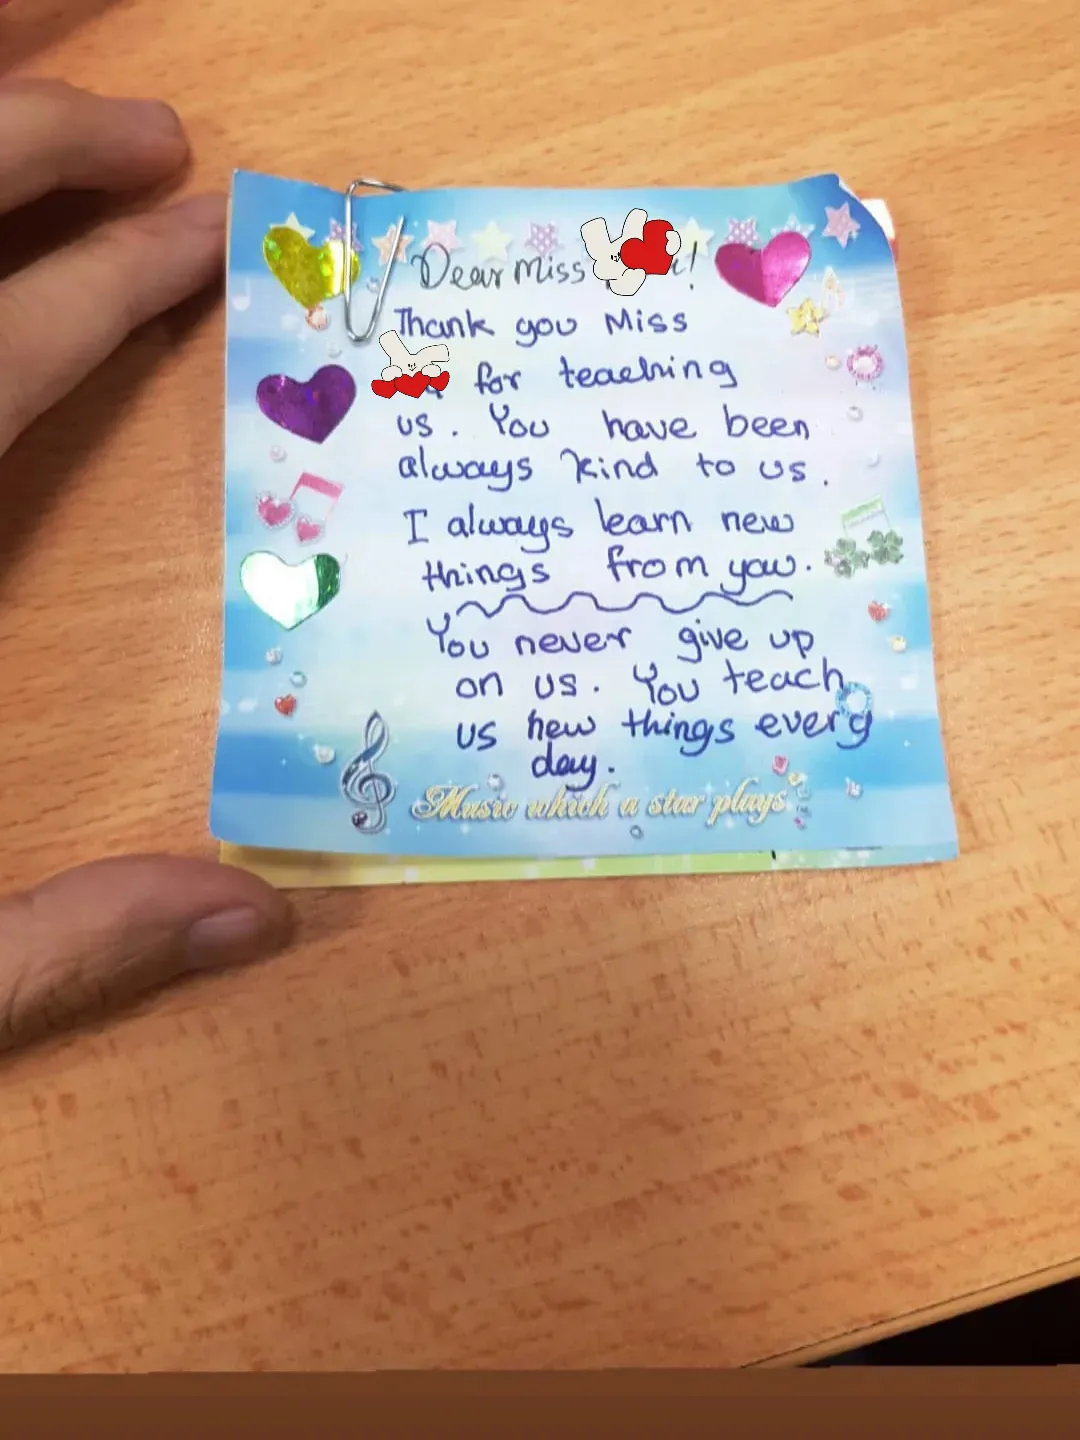 Dear Miss
Thank you Miss
for teaching
us. You have been
always kind to us.
I always learn new
things from you.
You never give up
on us. You teach
us new things every
day.
Music which a star plays